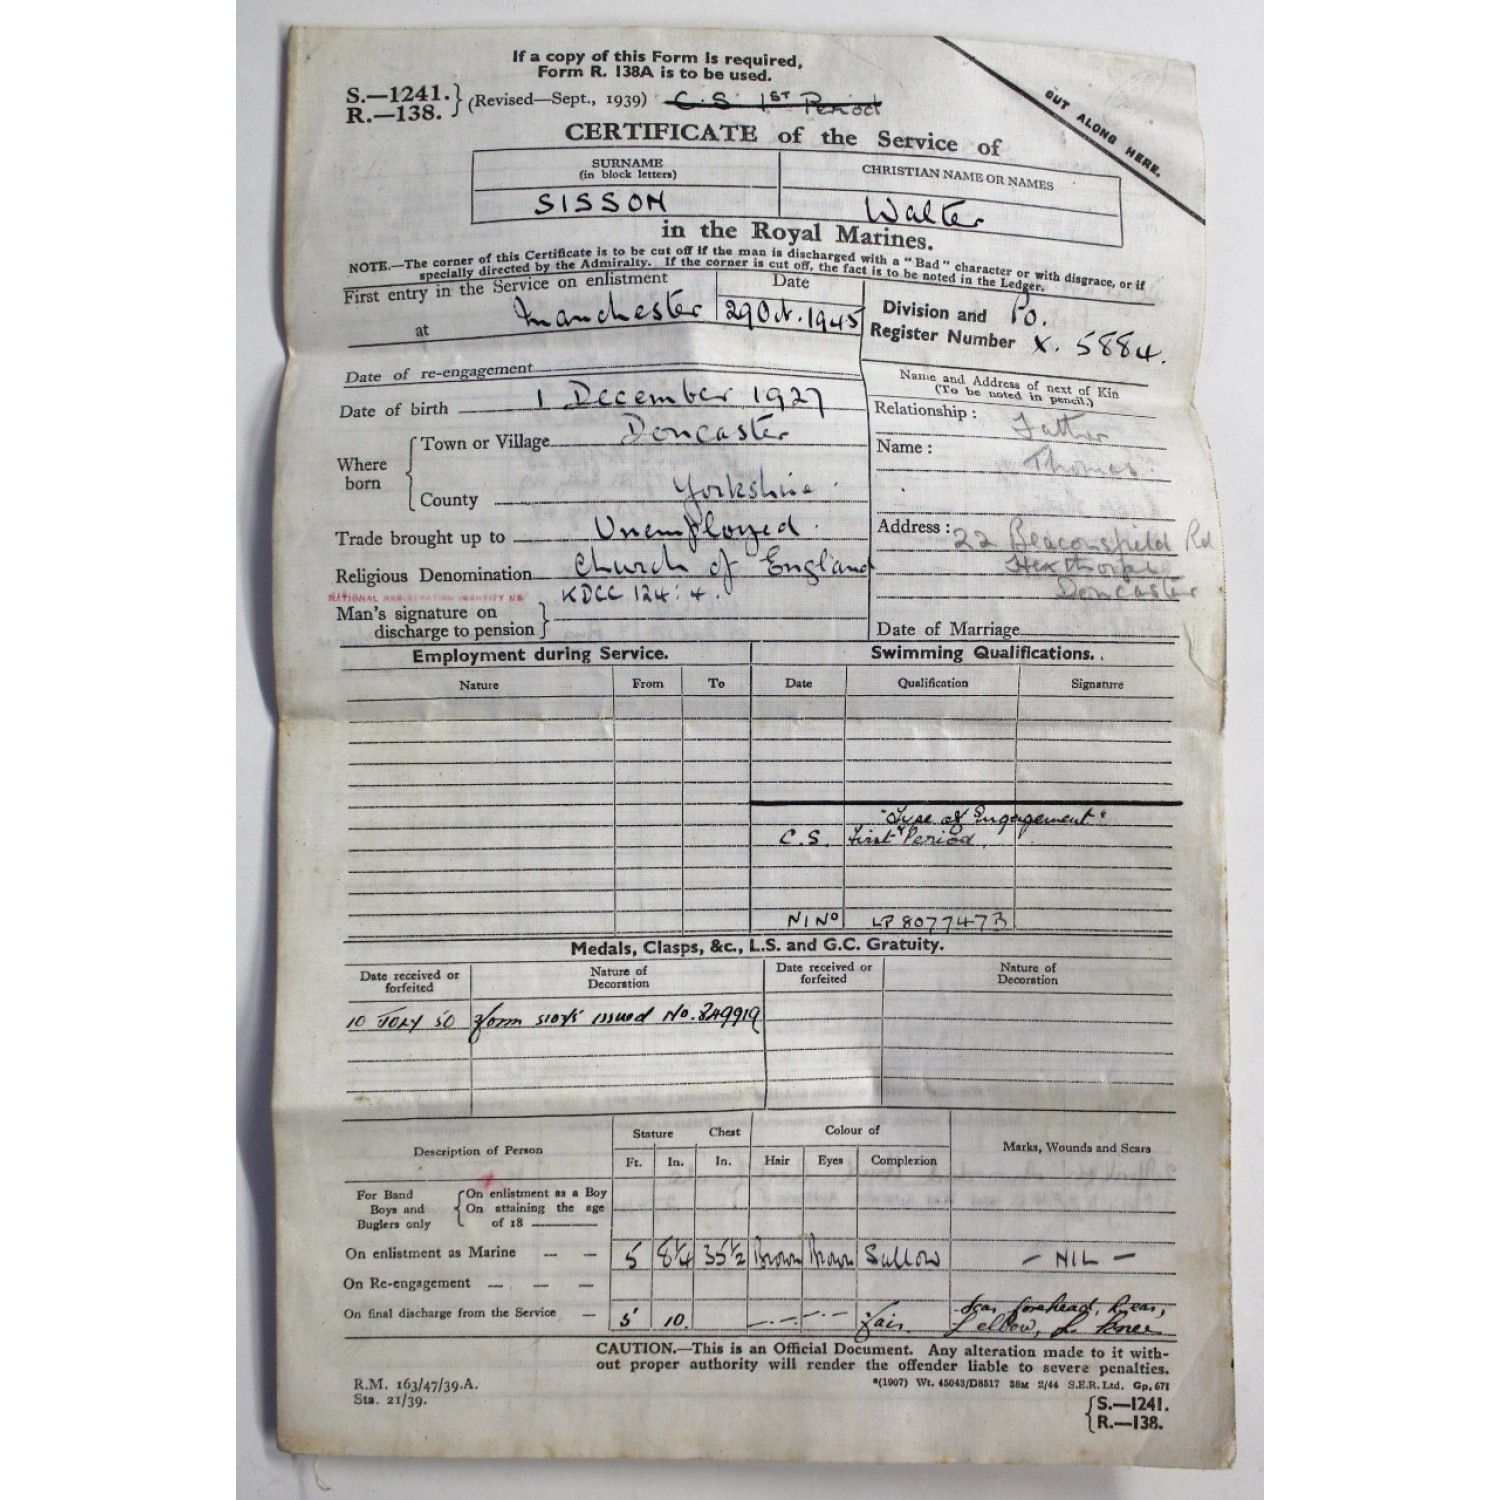 If a copy of this Form is required,
Form R. 138A is to be used.
S.—1241.
R.—138.
(Revised—Sept., 1939) C.S. 1ST Period
CUT ALONG HERE.
CERTIFICATE of the Service of
SURNAME
(in block letters)
CHRISTIAN NAME OR NAMES
SISSON Walter
in the Royal Marines.
NOTE.—The corner of this Certificate is to be cut off if the man is discharged with a "Bad" character or with disgrace, or if
specially directed by the Admiralty. If the corner is cut off, the fact is to be noted in the Ledger.
First entry in the Service on enlistment
at Manchester
Date
29 Oct. 1945
Division and Po.
Register Number X. 5884.
Date of re-engagement
Name and Address of next of Kin
(To be noted in pencil.)
Date of birth 1 December 1927
Relationship: Father
Where born
Town or Village Doncaster
Name: Thomas.
County Yorkshire.
Trade brought up to Unemployed.
Address: 22 Beaconsfield Rd
Hexthorpe
Doncaster
Religious Denomination Church of England
NATIONAL REGISTRATION IDENTITY No KDCC 124:4.
Man's signature on
discharge to pension
Date of Marriage
Employment during Service. Swimming Qualifications.
Nature From To Date Qualification Signature
"Type of Engagement"
C.S. First Period.
N I No LP807747B
Medals, Clasps, &c., L.S. and G.C. Gratuity.
Date received or
forfeited
Nature of
Decoration
Date received or
forfeited
Nature of
Decoration
10 JULY 50 Form issued No.
Description of Person
Stature Chest Colour of
Marks, Wounds and Scars
Ft. In. In. Hair Eyes Complexion
For Band
Boys and
Buglers only
On enlistment as a Boy
On attaining the age
of 18
On enlistment as Marine — — 5 8¼ 35½ Brown Brown Sallow — NIL —
On Re-engagement — — —
On final discharge from the Service — 5 10 —.— —.— Fair. Scar forehead,
L elbow, L. Knee
CAUTION.—This is an Official Document. Any alteration made to it with-
out proper authority will render the offender liable to severe penalties.
R.M. 163/47/39.A.
Sta. 21/39.
*(1907) Wt. 45043/D8517 38M 2/44 S.E.R. Ltd. Gp. 671
S.—1241.
R.—138.